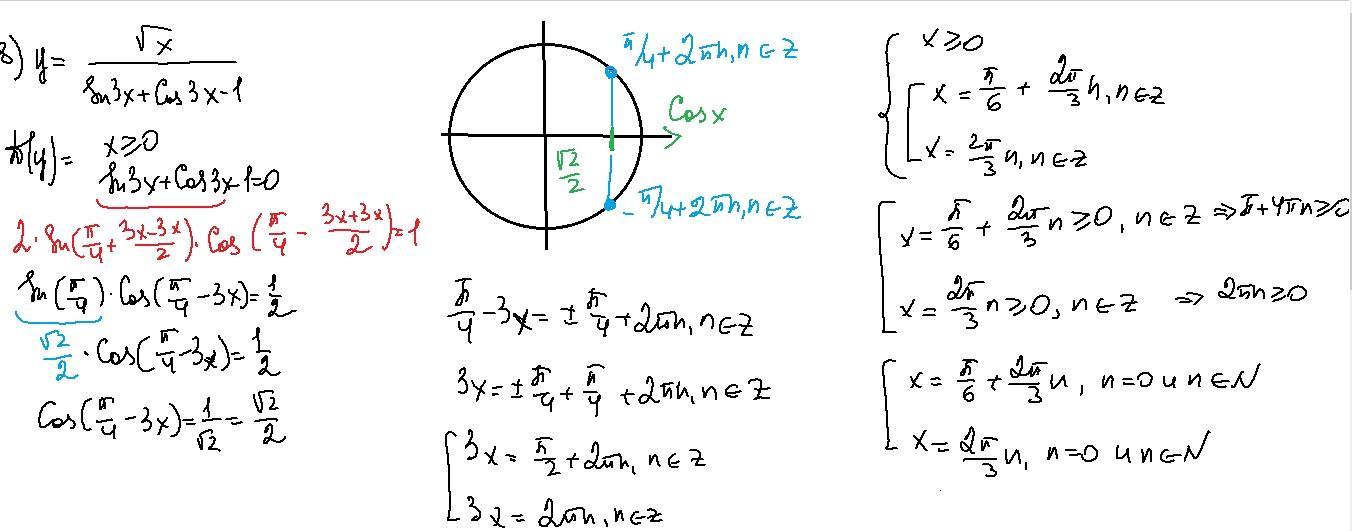 8) y = √x / (sin3x + cos3x - 1)
D(y) = x ≥ 0
sin3x + cos3x - 1 = 0
2 · sin(π/4 + (3x - 3x)/2) · cos(π/4 - (3x + 3x)/2) = 1
sin(π/4) · cos(π/4 - 3x) = 1/2
√2/2 · cos(π/4 - 3x) = 1/2
cos(π/4 - 3x) = 1/√2 = √2/2
π/4 + 2πn, n ∈ Z
cos x
√2/2
-π/4 + 2πn, n ∈ Z
π/4 - 3x = ± π/4 + 2πn, n ∈ Z
3x = ± π/4 + π/4 + 2πn, n ∈ Z
3x = π/2 + 2πn, n ∈ Z
3x = 2πn, n ∈ Z
x ≥ 0
x = π/6 + 2π/3 n, n ∈ Z
x = 2π/3 n, n ∈ Z
x = π/6 + 2π/3 n ≥ 0, n ∈ Z ⇒ π + 4πn ≥ 0
x = 2π/3 n ≥ 0, n ∈ Z ⇒ 2πn ≥ 0
x = π/6 + 2π/3 n, n = 0 и n ∈ N
x = 2π/3 n, n = 0 и n ∈ N